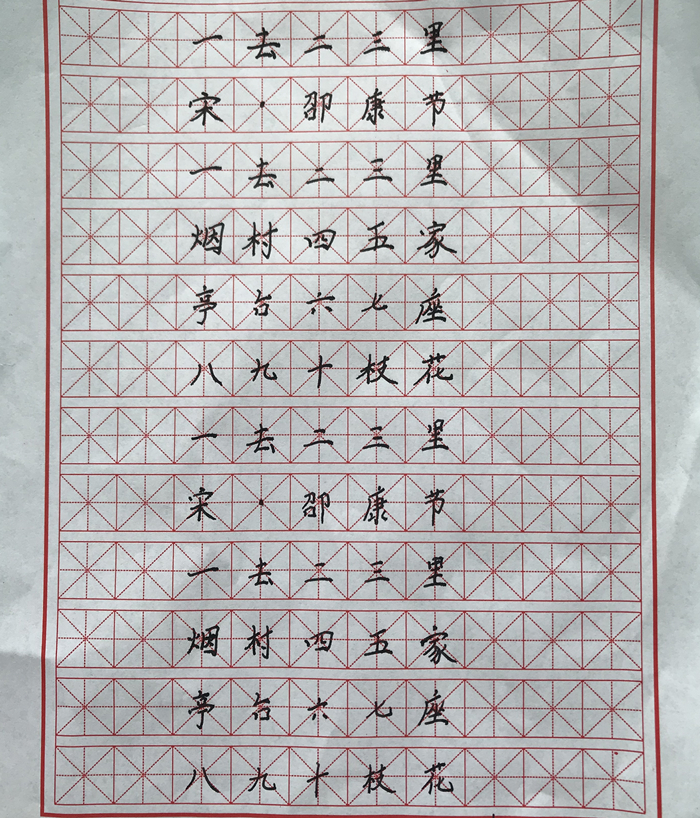 一去二三里
宋·邵康节
一去二三里
烟村四五家
亭台六七座
八九十枝花
一去二三里
宋·邵康节
一去二三里
烟村四五家
亭台六七座
八九十枝花